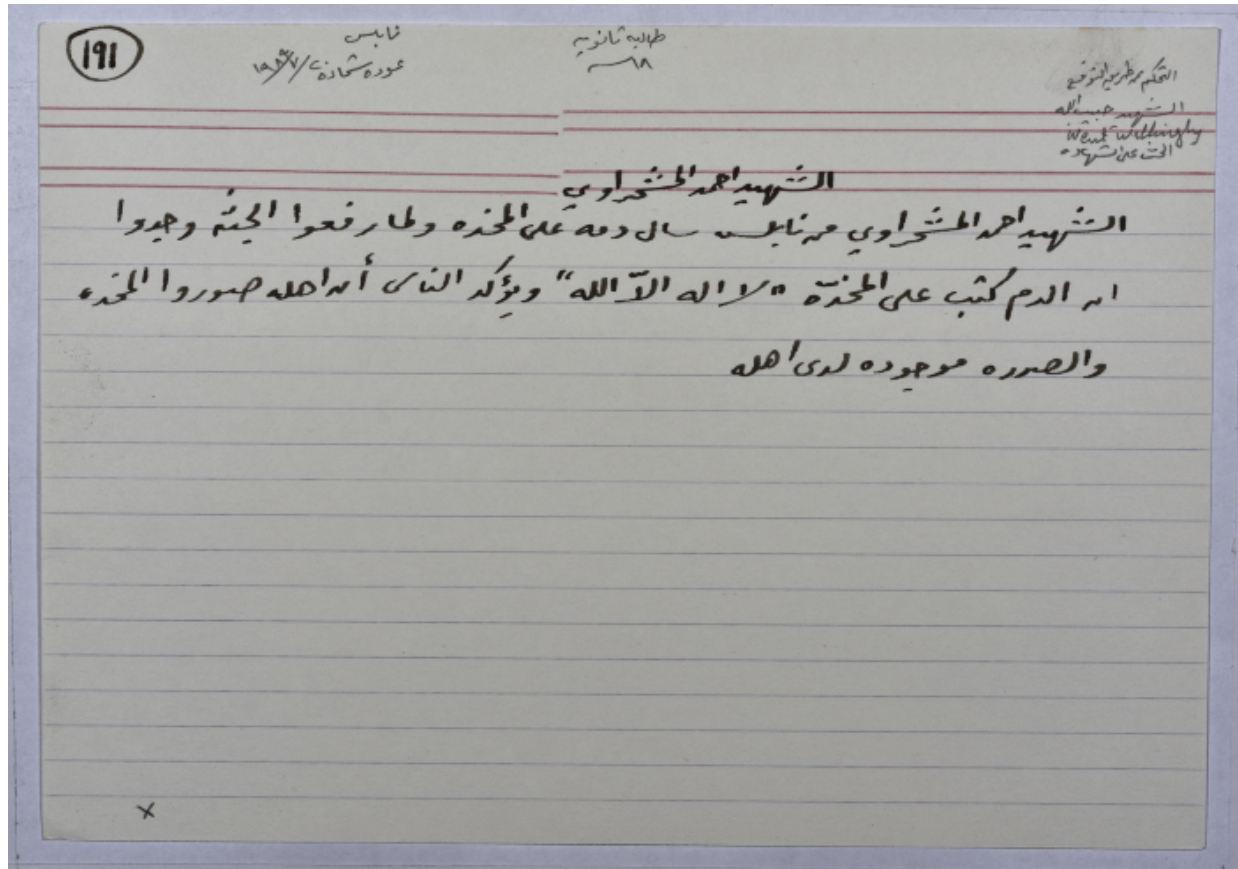 191
نابلس
عوده شحاده ٧/١٩٨٩
طالبه ثانويه
١٨ سنه
التحكم عن طريق التوقيع
الشهيد حبيب الله
went willingly
الحث على الشهاده
الشهيد احمد المشخراوي
الشهيد احمد المشخراوي من نابلس سال دمه على المخده ولما رفعوا الجثه وجدوا
ان الدم كتب على المخدّة "لا اله الاّ الله" ويؤكد الناس أن اهله صوروا المخده
والصوره موجوده لدى اهله
x